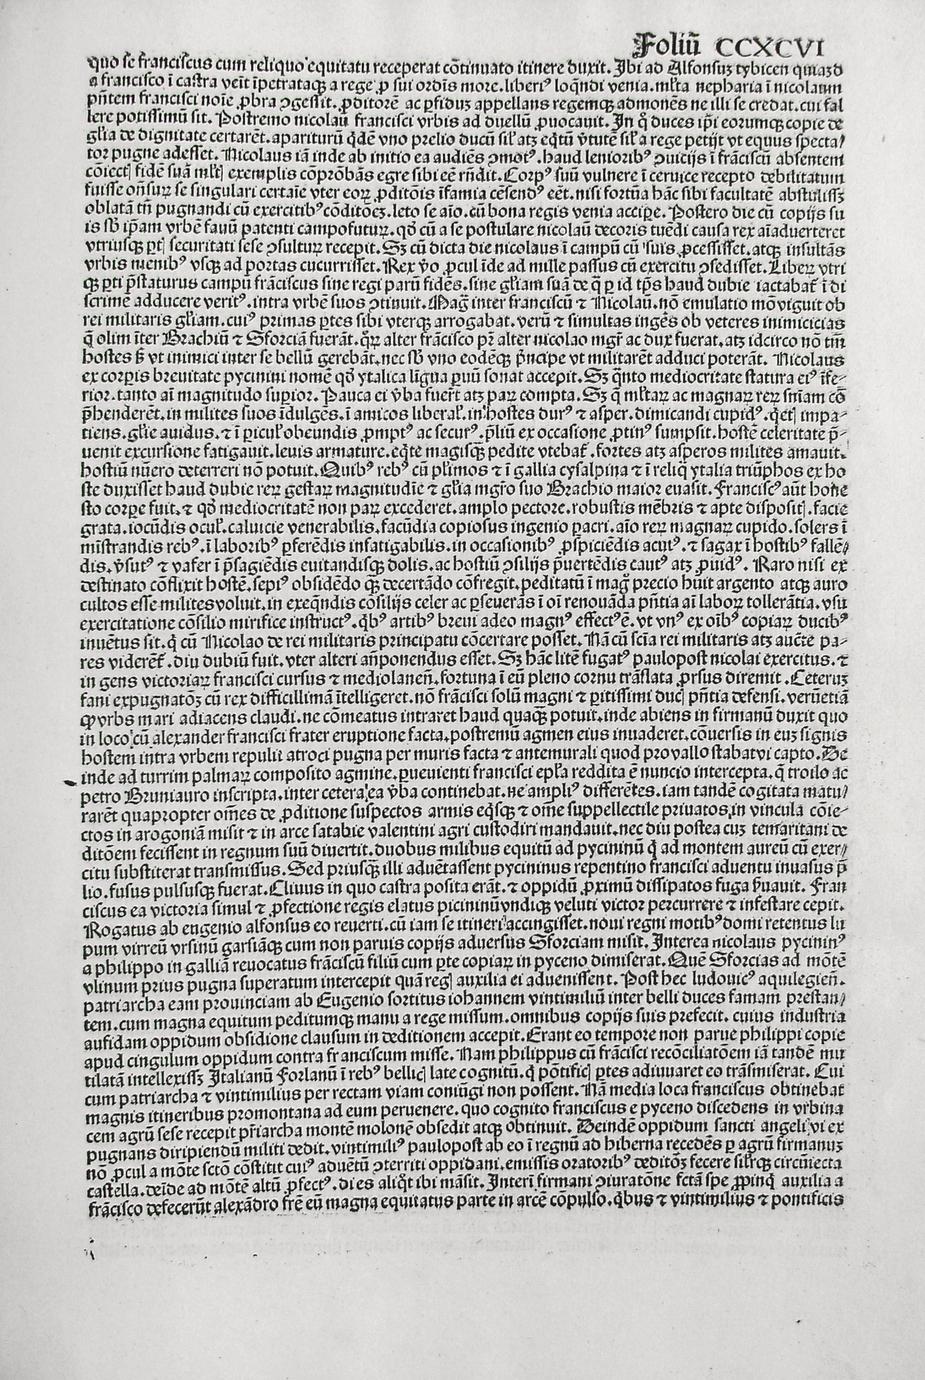 Foliū CCXCVI
quo se franciscus cum reliquo equitatu receperat cōtinuato itinere duxit. Ibi ad Alfonsuz tybicen quiazd
a francisco ī castra veīt īpetrataqȝ a rege ꝓ sui ordīs more.liberiꝰ loqndi venia.mlta nepharia ī nicolaum
pñtem francisci noīe ꝓbra ɔgessit. ꝓditorē ac ꝑfiduȝ appellans regemqȝ admonēs ne illi se credat.cui fal
lere potissimū sit. Postremo nicolaū francisci vrbis ad duellū ꝓuocauit. In q̄ duces ip̄i eorumqȝ copie de
gl̄ia de dignitate certarēt.apariturū qdē vno prelio ducū sil atȝ eqtū v̄tutē sil a rege petijt vt equus specta/
tor pugne adesset. Nicolaus iā inde ab initio ea audiēs ɔmotꝰ.haud lenioribꝰ ɔuicijs ī frāciscū absentem
cōiecit fidē suā exemplis cōprobās egre sibi eē rñdit. Corpꝰ suū vulnere ī ceruice recepto debilitatum
fuisse se singulari certaīe vter eoꝝ ꝓditōis īfamia cēsendꝰ eēt.nisi fortūa hāc sibi facultatē abstulissȝ
oblatā tñ pugnandi cū exercitibꝰ.leto se aīo.cū bona regis venia accipe. Postero die cū copijs su
is sb ip̄am vrbē fauū patenti campofutuꝝ.qd cū a se postulare nicolaū decoris tuēdi causa rex aīaduerteret
vtriusqȝ securitati sese ɔsultuꝝ recepit. Sȝ cū dicta die nicolaus ī campū cū suis ꝓcessisset.atqȝ insultās
vrbis menibꝰ vsqȝ ad portas cucurrisset. Rex v̄o ꝓcul īde ad mille passus cū exercitu ɔsedisset. Libeꝝ vtri
qȝ ꝑti p̄staturus campū frāciscus sine regi parū fidēs.sine gl̄iam suā de q̄ ꝑ id tp̄s haud dubie iactabat ī di
scrimē adducere veritꝰ.intra vrbē suos ɔtinuit. Mag inter franciscū ⁊ Nicolaū.nō emulatio mō viguit ob
rei militaris gl̄iam.cuiꝰ primas ꝑtes sibi vterqȝ arrogabat.verū ⁊ simultas ingēs ob veteres inimicicias
q̄ olim īter Brachiū ⁊ Sforciā fuerāt.q̄ꝝ alter frācisco pr̄ alter nicolao mgr̄ ac dux fuerat.atȝ idcirco nō tm̄
hostes s̄ vt inimici inter se bellū gerebāt.nec sb vno eodēqȝ p̄ncipe vt militarēt adduci poterāt. Nicolaus
ex corpis breuitate pycinini nomē qd ytalica līgua ꝑuū sonat accepit. Sȝ q̄nto mediocritate statura eiꝰ īfe-
rior.tanto aī magnitudo supior. Pauca ei v̄ba fuert atȝ paꝝ compta. Sȝ q̄ mltaꝝ ac magnaꝝ reꝝ sniam cō
p̄henderēt.in milites suos īdulgēs.ī amicos liberal.in hostes durꝰ ⁊ asper.dimicandi cupidꝰ. impa-
tiens.gl̄ie auidus.⁊ ī ꝑicul obeundis ꝓmptꝰ ac securꝰ.p̄liū ex occasione ꝓtinꝰ sumpsit.hostē celeritate p̄-
uenit excursione fatigauit.leuis armature.eqte magisqȝ pedite vtebat.fortes atȝ asperos milites amauit.
hostiū nūero deterreri nō potuit. Quibꝰ rebꝰ cū pl̄imos ⁊ ī gallia cysalpina ⁊ ī reliq ytalia triūphos ex ho
ste duxisset haud dubie reꝝ gestaꝝ magnitudīe ⁊ gl̄ia mgr̄o suo Brachio maior euasit. Franciscꝰ aūt hone
sto corpe fuit.⁊ qd mediocritatē non paꝝ excederet.amplo pectore.robustis mēbris ⁊ apte dispositis.facie
grata.iocūdis ocul.caluicie venerabilis.facūdia copiosus ingenio ꝑacri.aīo reꝝ magnaꝝ cupido.solers ī
mīstrandis rebꝰ.ī laboribꝰ ꝑferēdis infatigabilis.in occasionibꝰ ꝓspiciēdis acutꝰ.⁊ sagax ī hostibꝰ fallē/
dis.v̄sutꝰ ⁊ vafer ī p̄sagiēdis euitandisqȝ dolis.ac hostiū ɔsilijs p̄uertēdis cautꝰ atȝ ꝓuidꝰ. Raro nisi ex
destinato cōflixit hostē.sepiꝰ obsidēdo qȝ decertādo cōfregit.peditatū ī mag precio huit argento atqȝ auro
cultos esse milites voluit.in exeqndis cōsilijs celer ac ꝑseuerās ī oī renouāda pñtia aī laboꝝ tollerātia.vsu
exercitatione cōsilio mirifice instructꝰ.qbꝰ artibꝰ breui adeo magnꝰ effectꝰ ē.vt vnꝰ ex oībꝰ copiaꝝ ducibꝰ
inuētus sit.q̄ cū Nicolao de rei militaris principatu cōcertare posset. Nā cū scīa rei militaris atȝ aucte pa-
res videret.diu dubiū fuit.vter alteri anponendus esset. Sȝ hāc litē fugatꝰ paulopost nicolai exercitus.⁊
in gens victoriaꝝ francisci cursus ⁊ mediolaneñ.fortuna ī eū pleno cornu trāslata ꝓrsus diremit. Ceteruȝ
fani expugnatōȝ cū rex difficillimā ītelligeret.nō frācisci solū magni ⁊ ꝑitissimi ducis pñtia defensi.verūetiā
ꝙ vrbs mari adiacens claudi.ne cōmeatus intraret haud quaqȝ potuit.inde abiens in firmanū duxit quo
in loco cū alexander francisci frater eruptione facta.postremū agmen eius inuaderet.cōuersis in euȝ signis
hostem intra vrbem repulit atroci pugna per muris facta ⁊ antemurali quod pro vallo stabat vi capto. De
inde ad turrim palmaꝝ composito agmine.ꝑueuienti francisci epl̄a reddita ē nuncio intercepta.q̄ troilo ac
petro Bruniauro inscripta.inter cetera ea v̄ba continebat.ne ampliꝰ differētes.iam tandē cogitata matu/
rarēt quapropter oīnes de ꝓditione suspectos armis eqsqȝ ⁊ oīne suppellectile priuatos.in vincula cōie-
ctos in arogoniā misit ⁊ in arce satabie valentini agri custodiri mandauit.nec diu postea cuȝ temaritani de
ditōem fecissent in regnum suū diuertit.duobus milibus equitū ad pycininū q̄ ad montem aureū cū exer/
citu substiterat transmissus. Sed priusqȝ illi aduētassent pycininus repentino francisci aduentu inuasus p̄
lio.fusus pulsusqȝ fuerat. Cliuus in quo castra posita erāt.⁊ oppidū ꝓximū dissipatos fuga p̄uauit. Fran
ciscus ea victoria simul ⁊ ꝓfectione regis elatus picininūvndiqȝ veluti victor percurrere ⁊ infestare cepit.
Rogatus ab eugenio alfonsus eo reuerti.cū iam se itineri accingisset.noui regni motibꝰ domi retentus lu
pum virreū vrsinū garsiāqȝ cum non paruis copijs aduersus Sforciam misit. Interea nicolaus pycininꝰ
a philippo in galliā reuocatus frāciscū filiū cum ꝑte copiaꝝ in pyceno dimiserat. Quē Sforcias ad mōtē
vlinum prius pugna superatum intercepit quā regis auxilia ei aduenissent. Post hec ludouicꝰ aquilegieñ.
patriarcha eam prouinciam ab Eugenio sortitus iohannem vintimiliū inter belli duces famam prestan/
tem.cum magna equitum peditumqȝ manu a rege missum.omnibus copijs suis prefecit. cuius industria
aufidam oppidum obsidione clausum in deditionem accepit. Erant eo tempore non parue philippi copie
apud cingulum oppidum contra franciscum misse. Nam philippus cū frācisci recōciliatōem iā tandē mu
tilatā intellexissȝ Italianū Forlanū ī rebꝰ bellicis late cognitū.q̄ pōtificis ꝑtes adiuuaret eo trāsmiserat. Cui
cum patriarcha ⁊ vintimilius per rectam viam coniūgi non possent. Nā media loca franciscus obtinebat
magnis itineribus promontana ad eum peruenere. quo cognito franciscus e pyceno discedens in vrbina
cem agrū sese recepit pr̄iarcha montē molonē obsedit atqȝ obtinuit. Deindē oppidum sancti angeli vi ex
pugnans diripiendū militi dedit. vintimiliꝰ paulopost ab eo ī regnū ad hiberna recedēs ꝑ agrū firmanuȝ
nō ꝓcul a mōte sctō cōstitit cuiꝰ aduētū ɔterriti oppidani.emissis oratoribꝰ deditōȝ fecere silrqȝ circūiecta
castella.deīde ad mōtē altū ꝓfectꝰ.di es aliqt ibi māsit. Interī firmani ɔiuratōne fctā spe ꝓpinq̄ auxilia a
frācisco defecerūt alexādro frē eū magna equitatus parte in arcē cōpulso.qbus ⁊ vintimilius ⁊ pontificis